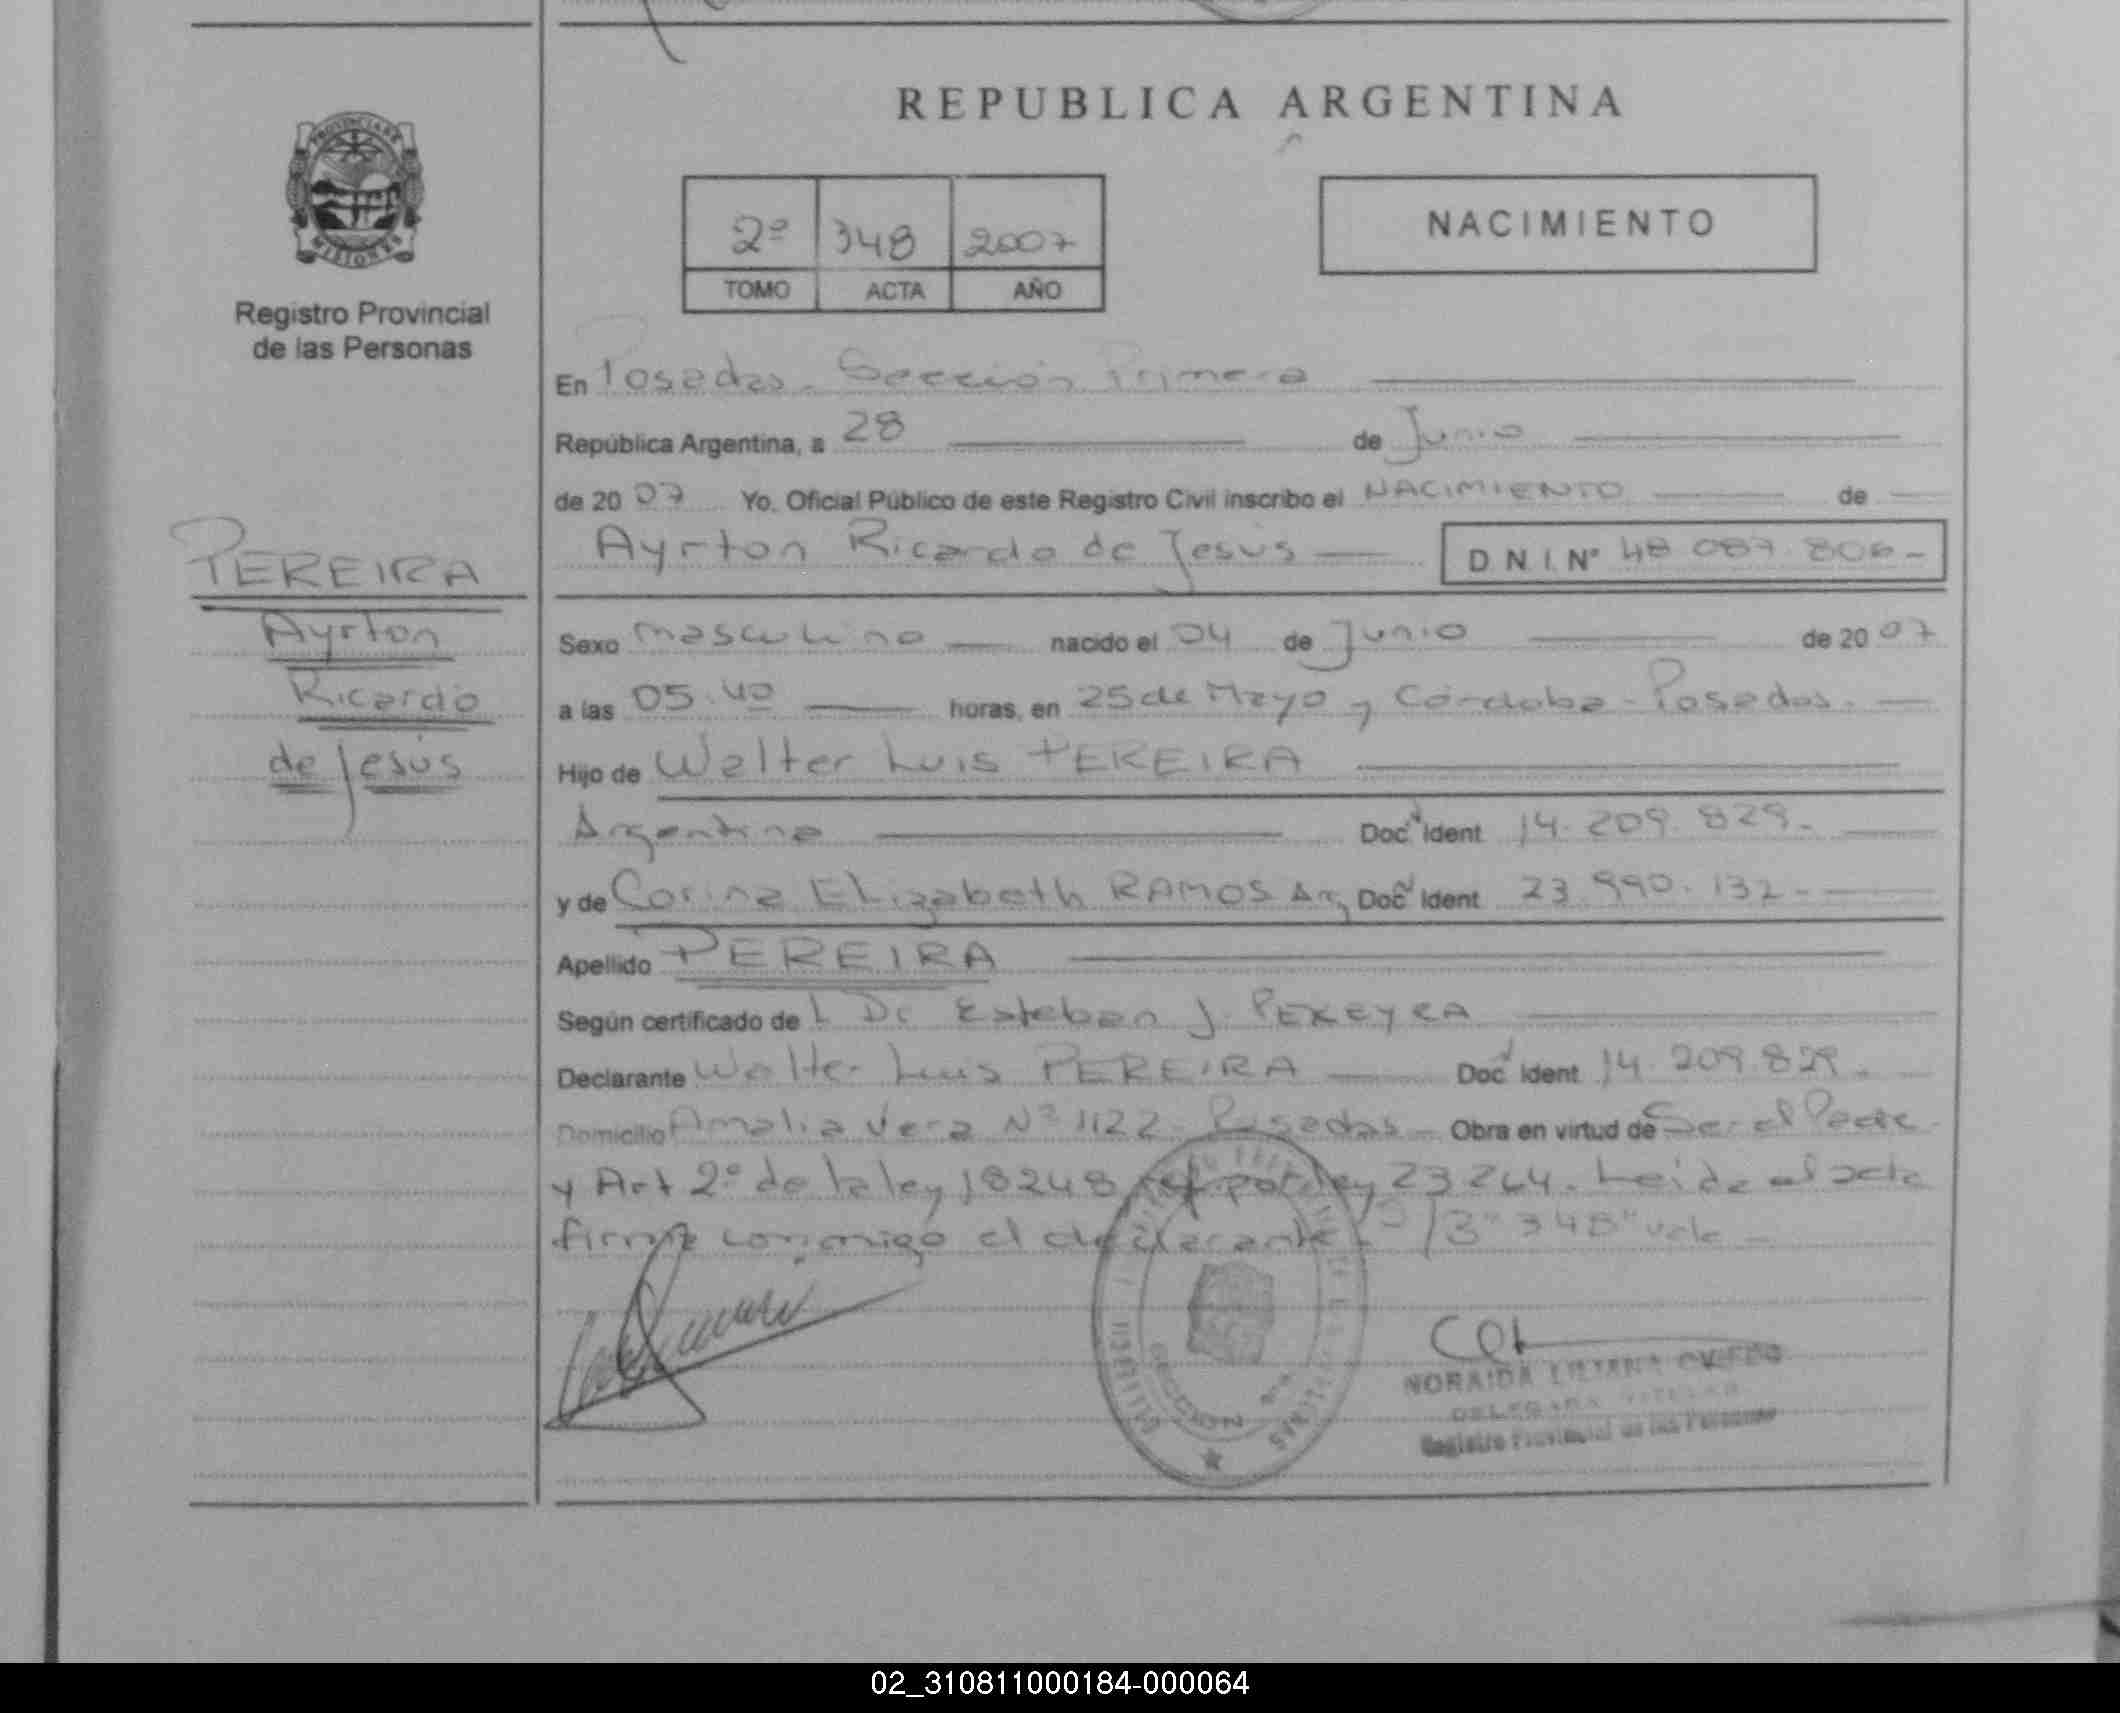 REPUBLICA ARGENTINA
PROVINCIA DE
MISIONES
Registro Provincial
de las Personas
2º 348 2007
TOMO ACTA AÑO
NACIMIENTO
En Posadas. Sección Primera
República Argentina, a 28 de Junio
de 2007 Yo. Oficial Público de este Registro Civil inscribo el NACIMIENTO de
Ayrton Ricardo de Jesús D N.I. Nº 48 087 806-
PEREIRA
Ayrton
Ricardo
de Jesús
Sexo masculino nacido el 04 de Junio de 2007
a las 05.40 horas, en 25 de Mayo y Córdoba - Posadas.
Hijo de Walter Luis PEREIRA
Argentina Doc Ident 14.209.829.
y de Corina Elizabeth RAMOS Arg Doc Ident 23.990.132-
Apellido PEREIRA
Según certificado de L Dr Esteban J. PEREYRA
Declarante Walter Luis PEREIRA Doc Ident 14.209.829.
Domicilio Amalia Vera Nº 1122 - Posadas - Obra en virtud de Ser el Padre
y Art 2º de la ley 18248 por ley 23264. Leída el acta
firma conmigo el declarante. "348" vale -
SECCION
NORAIDA LILIANA OVIEDO
DELEGADA TITULAR
Registro Provincial de las Personas
02_310811000184-000064